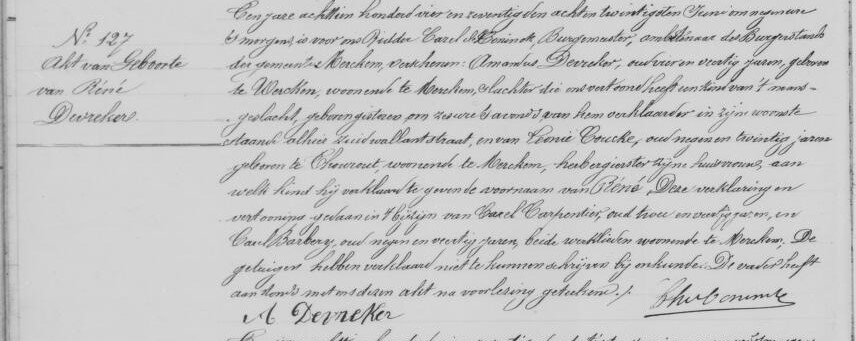 N.° 127
Akt van Geboorte
van Réné
Devreker.
Ten jare achttien honderd vier en zeventig den acht en twintigsten Juni om negen ure
'smorgens, is voor ons Ridder Carel de Coninck, Burgemeester, ambtenaar des Burgerstands
der gemeente Merckem, verschenen: Amandus Devreker, oud vier en veertig jaren, geboren
te Wercken, woonende te Merckem, slachter die ons vertoond heeft een kind van 't man-
geslacht, geboren gisteren om zes ure 's avonds van hem verklaarder in zijne woonste
staande alhier zuidwallantstraat, en van Leonie Coucke, oud negen en twintig jaren
geboren te Thourout, woonende te Merckem, herbergierster zijne huisvrouw, aan
welk kind hij verklaard te geven de voornaam van Réné. Deze verklaring en
vertooning gedaan in 't bijzijn van Carel Carpentier, oud twee en veertig jaren, en
Carel Barbery, oud negen en veertig jaren, beide werklieden woonende te Merckem. De
getuigen hebben verklaard niet te kunnen schrijven bij onkunde. De vader heeft
aanstonds met ons dezen akt na voorlezing geteekend ./.
A Devreker